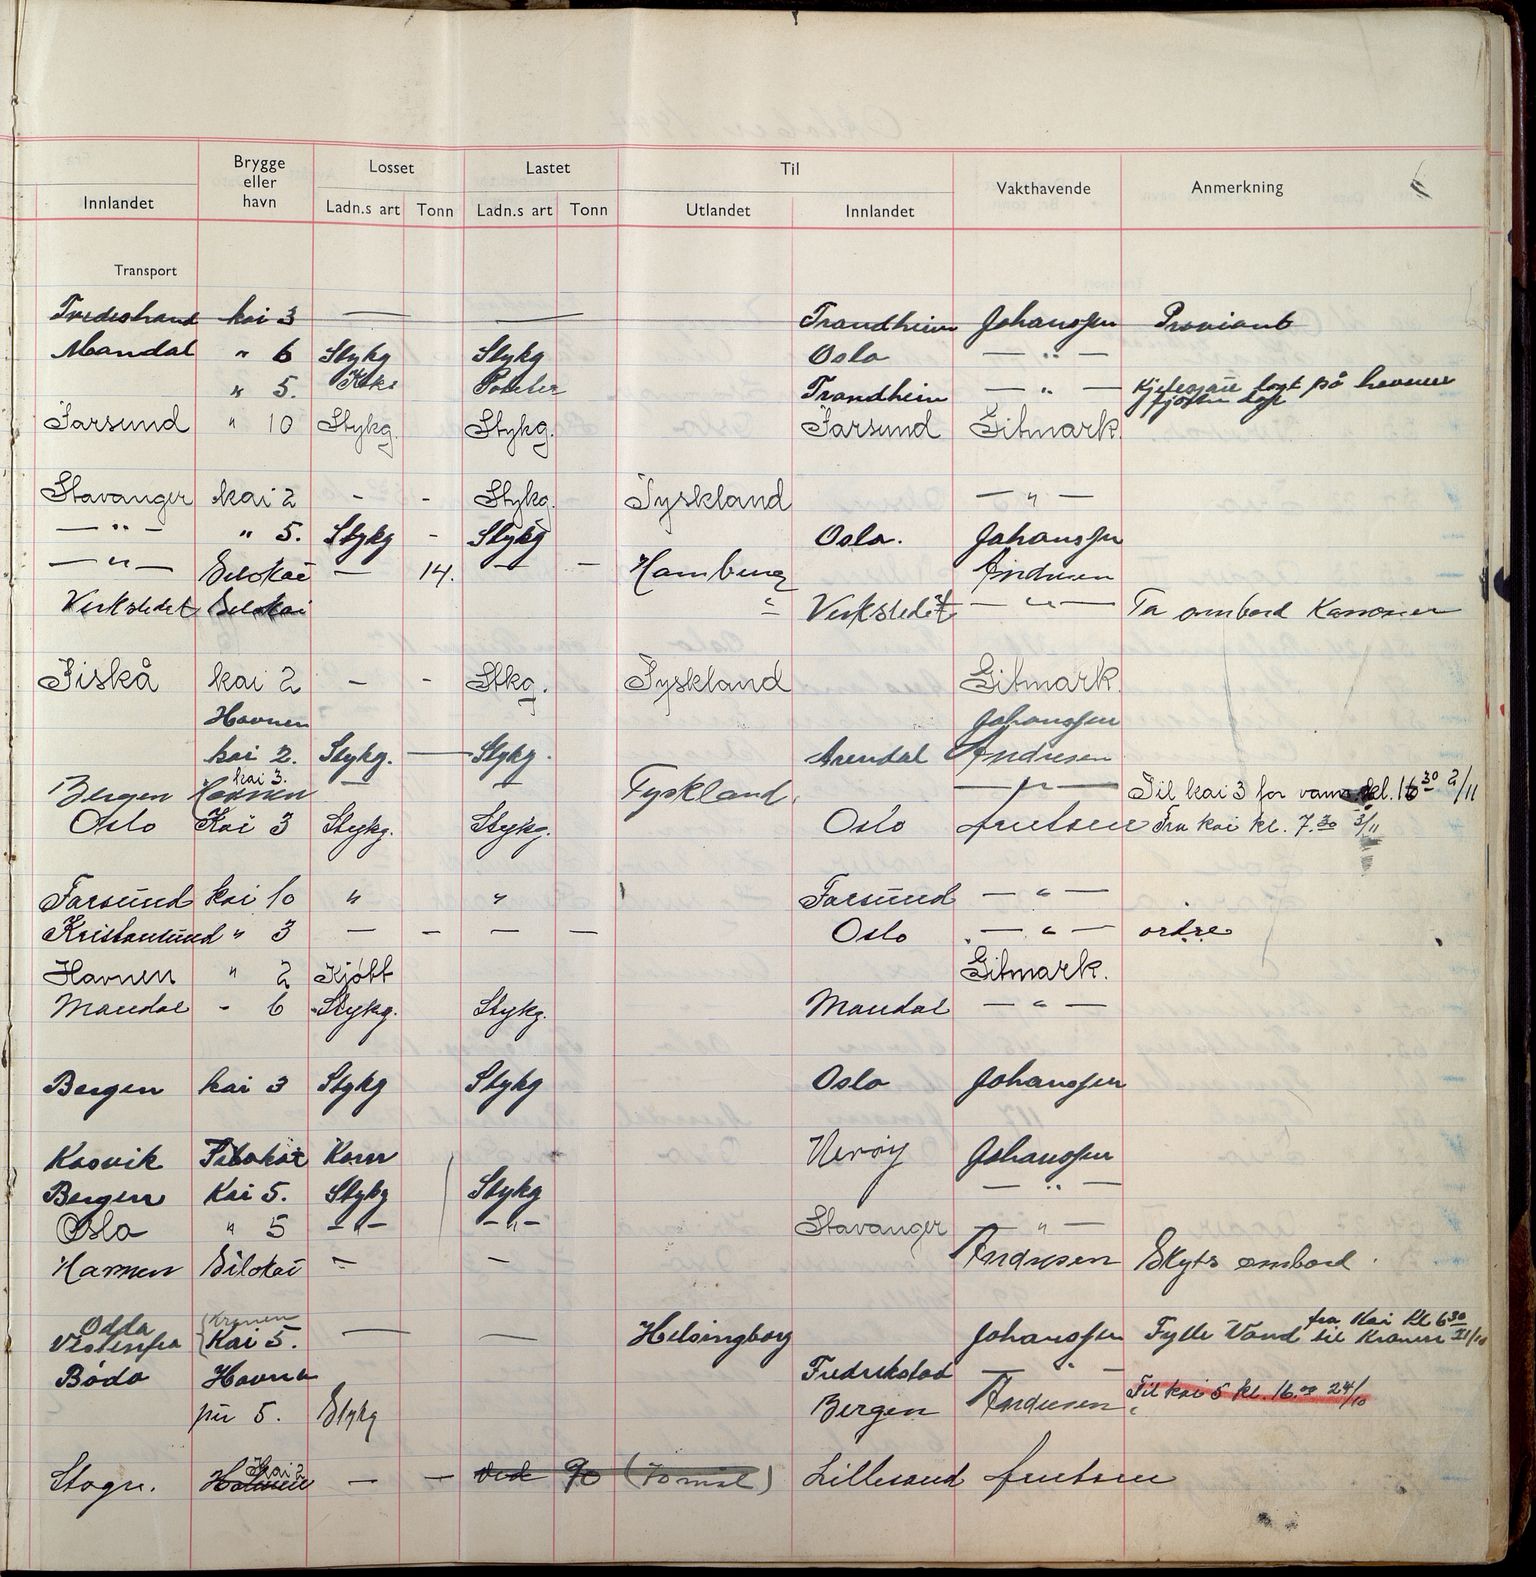 Brygge eller havn Losset Lastet Til Vakthavende Anmerkning
Innlandet Ladn.s art Tonn Ladn.s art Tonn Utlandet Innlandet
Transport
Tvedestrand kai 3 — — Trondheim Johanssen Proviant
Mandal " 6 Stykg Stykg Oslo — " —
" 5. Koks Poteter Trondheim — " — på havnen
Farsund " 10 Stykg. Stykg. Farsund Gitmark.
Stavanger kai 2 - - Stykg. Tyskland — " —
— " — " 5. Stykg - Stykg Oslo. Johanssen
— " — Silokai — 14. — — Hamburg Andresen
Verkstedet Silokai Verkstedet — " — Ta ombord Kanoner
Fiskå kai 2 - - Stkg. Tyskland Gitmark.
Havnen Johanssen
kai 2. Stykg. — Stykg. Arendal Andresen
kai 3.
Bergen Havnen — — Tyskland. — " — Til kai 3 for vann kl. 16 30 2/11
Oslo Kai 3 Stykg. Stykg. Oslo Fra kai kl. 7.30 3/11
Farsund kai 10 " " Farsund — " —
Kristansund " 3 — - — — Oslo — " — ordre
Havnen " 2 Kjøtt Gitmark.
Mandal - 6 Stykg. Stykg. Mandal — " —
Bergen kai 3 Stykg Stykg Oslo Johanssen
Kosvik Silokai Korn Nevøy Johanssen
Bergen Kai 5. Stykg Stykg — " —
Oslo " 5 — " — — " — Stavanger — " —
Havnen Silokai — — Andresen Skyts ombord.
Odda Kranen fra Kai kl 6 30
Vestenfra Kai 5. — — Helsingborg Johanssen Fylle Vand til Kranen 21/10
Bodø Havna Fredrikstad — " —
pir 5. Stykg Bergen Andresen Til kai 5 kl. 16.00 24/10
Kai 2
Stagn. Holmen — — ved 90 Lillesand